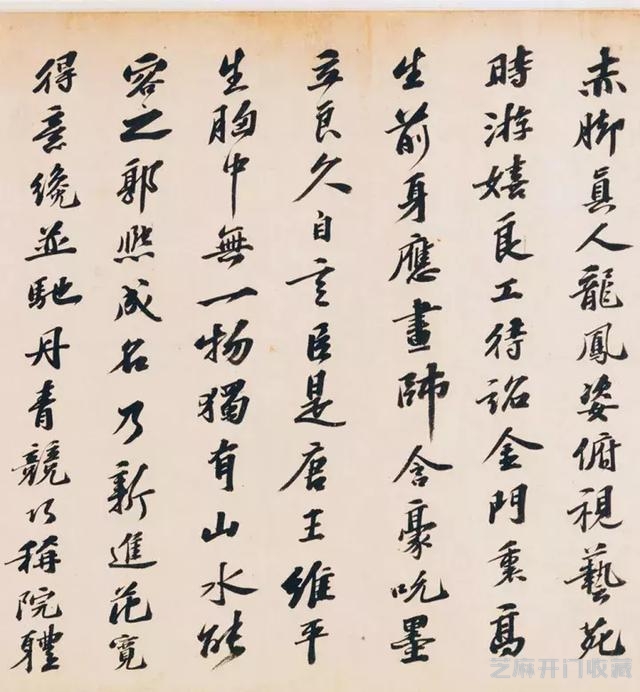 赤脚眞人龍鳳姿俯視藝苑
時游嬉良工待詔金門裏高
生前身應畫師含豪吮墨
立良久自言臣是唐王維平
生胸中無一物獨有山水能
容之郭熙成名乃新進范寬
得意纔並馳丹青競巧稱院體
芝麻开门收藏